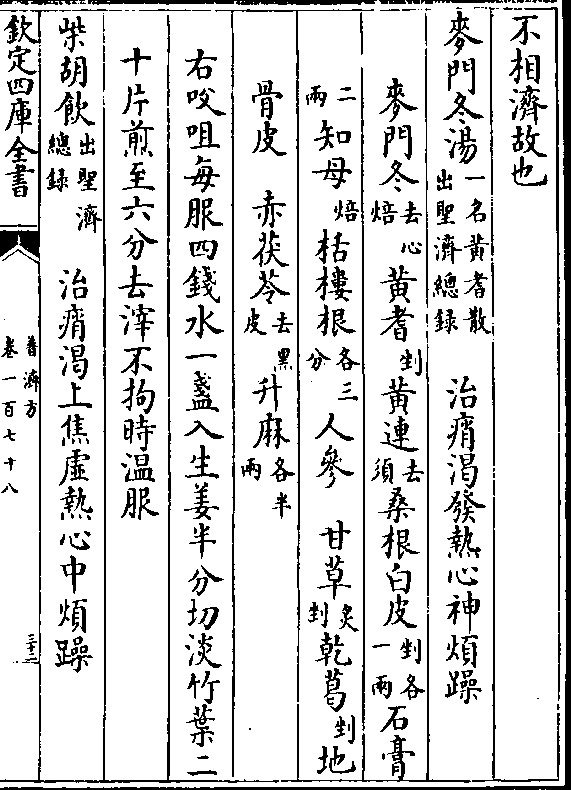 不相濟故也
麥門冬湯一名黃耆散出聖濟總錄 治痟渴發熱心神煩躁
麥門冬去心焙 黃耆剉 黃連去須 桑根白皮剉各一兩 石膏
二兩 知母焙 栝樓根各三分 人參 甘草炙剉 乾葛剉 地
骨皮 赤茯苓去黑皮 升麻各半兩
右㕮咀每服四錢水一盞入生姜半分切淡竹葉二
十片煎至六分去滓不拘時溫服
柴胡飲出聖濟總錄 治痟渴上焦虛熱心中煩躁
欽定四庫全書
普濟方
卷一百七十八
三十二